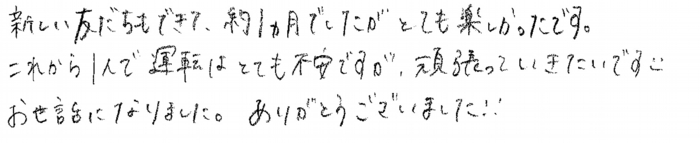 新しい友だちもできて、約1ヵ月でしたがとても楽しかったです。
これから1人で運転はとても不安ですが、頑張っていきたいです
お世話になりました。ありがとうございました!!